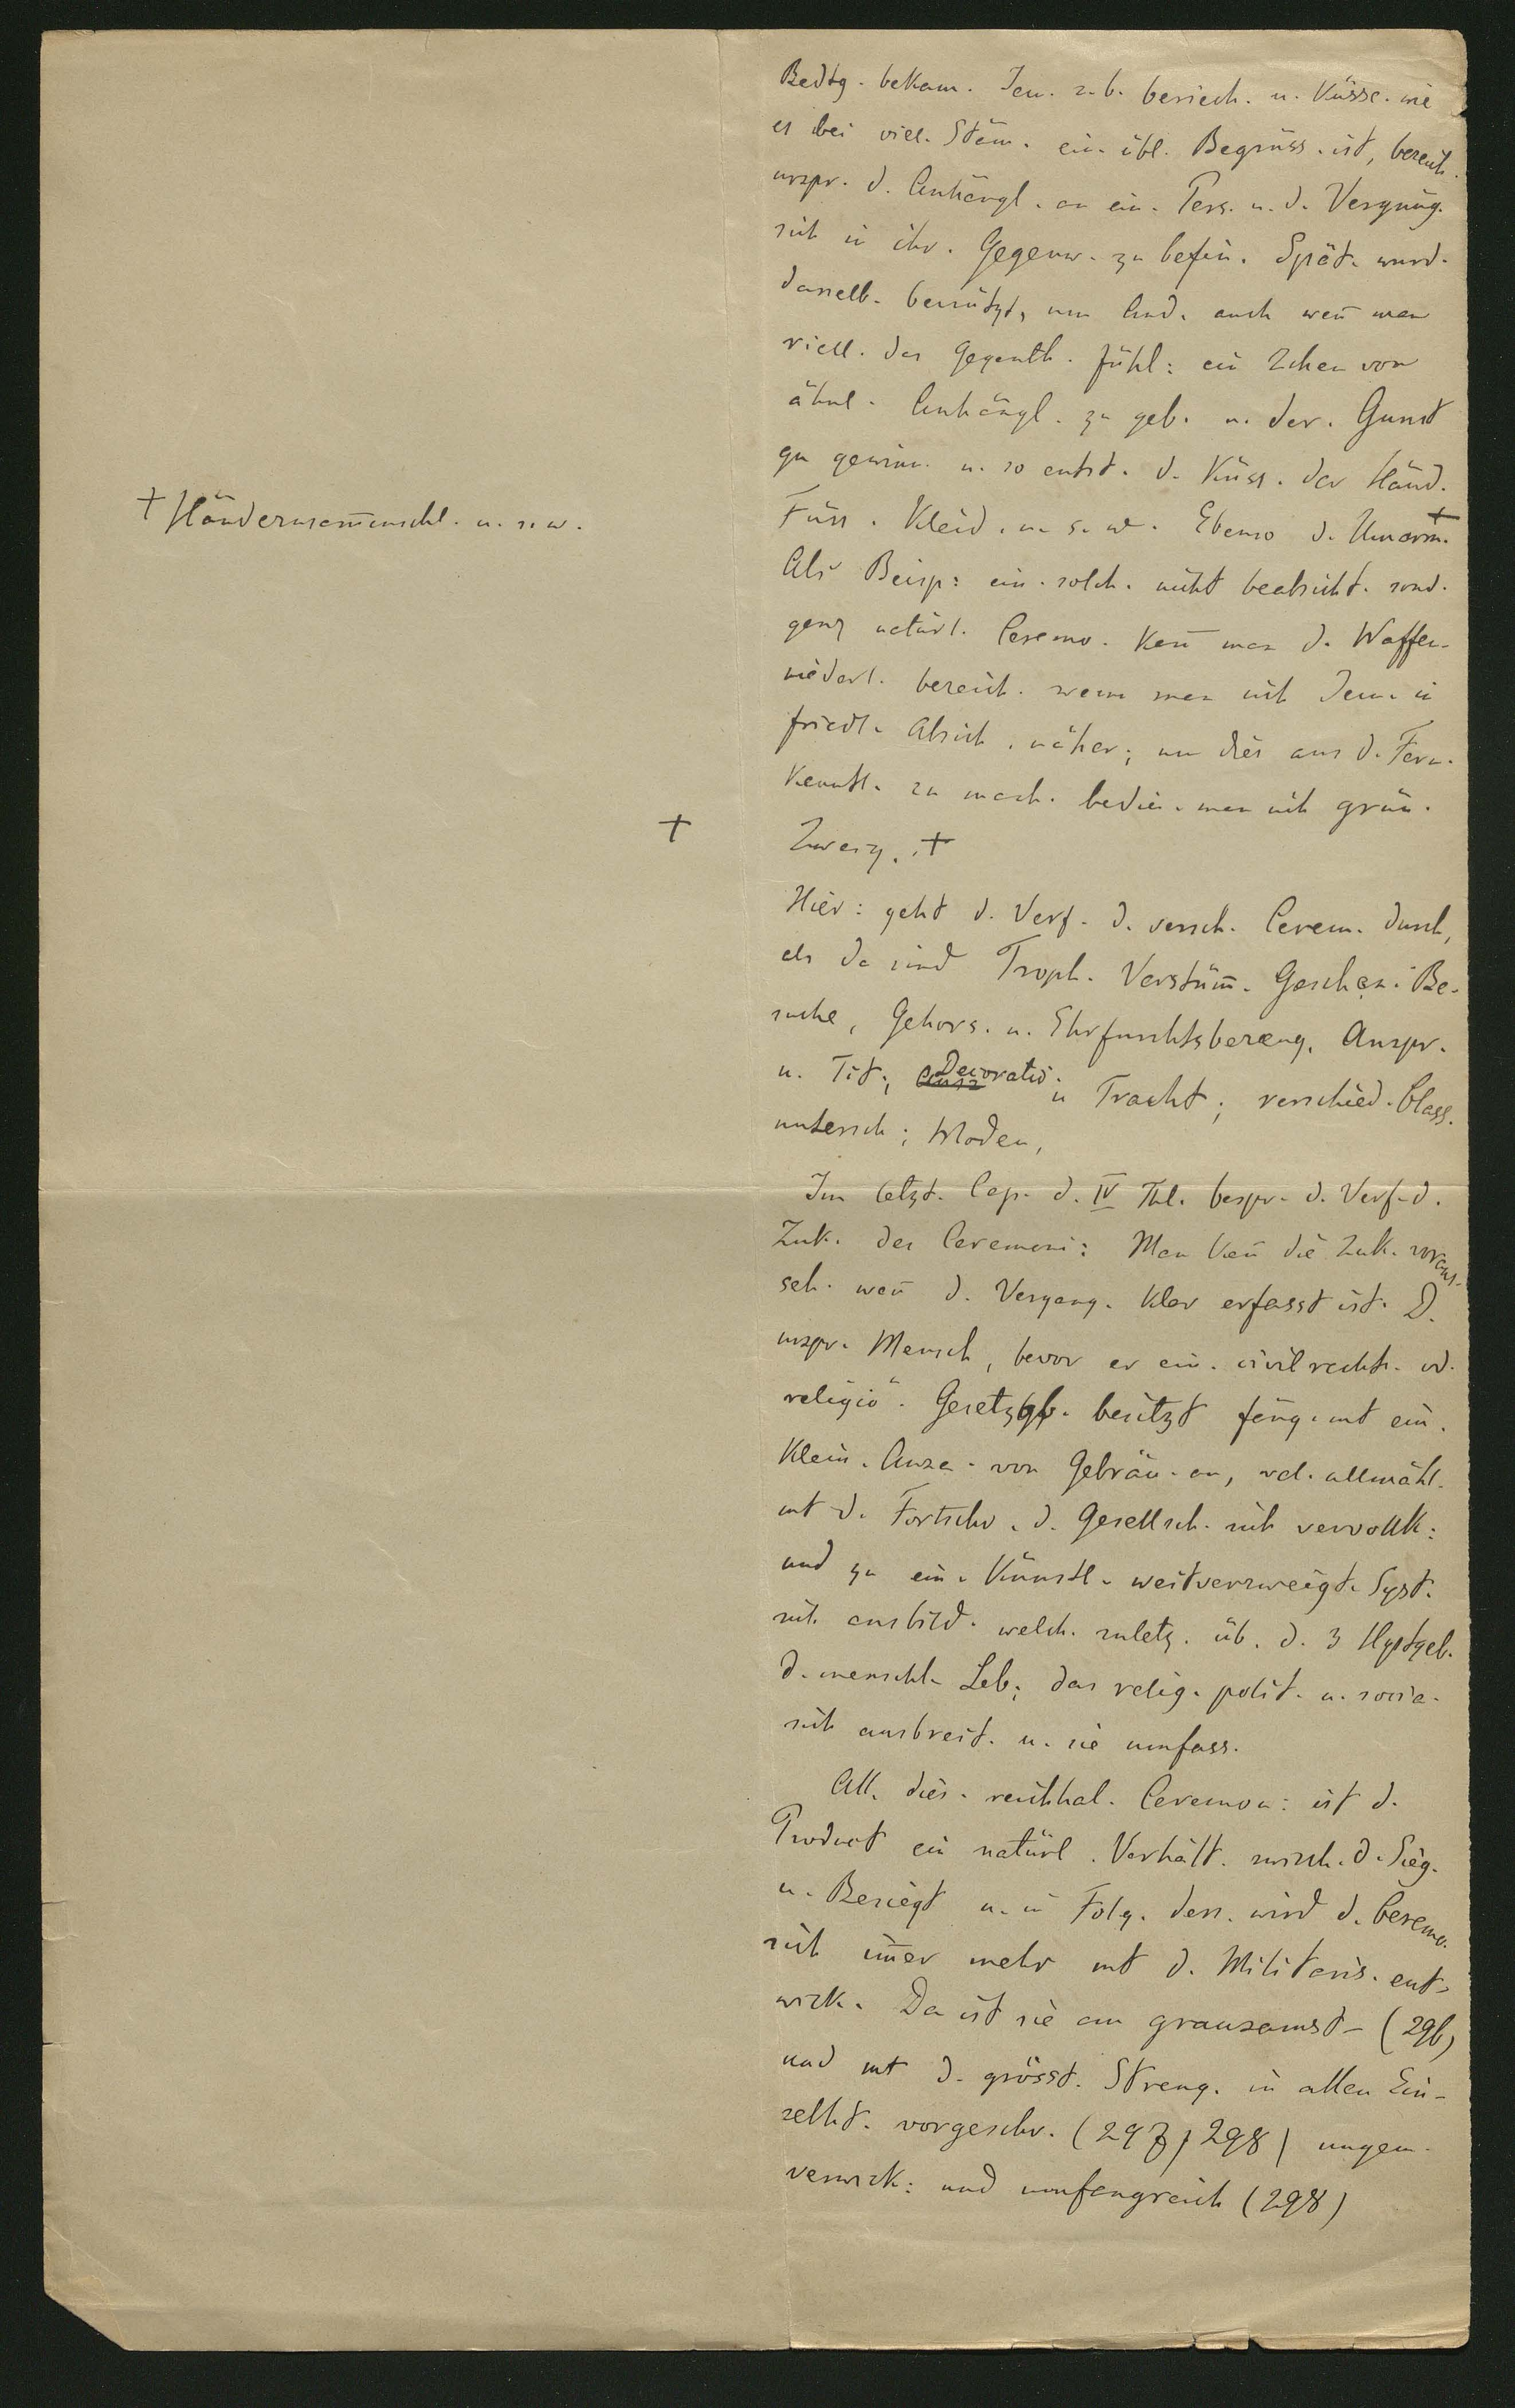 Bedtg. bekam. Jem. z. b. beriech. u. Küsse. wie
es bei viel. Stäm. ein. übl. Begrüss. ist, bezeich.
urspr. d. Anhängl. an ein. Pers. u. d. Vergnüg.
sich in ihr. Gegenw. zu befin. Spät. wurd.
dasselb. benützt, um And. auch weñ man
viell. das Gegenth. fühl: ein Zchen von
ähnl. Anhängl. zu geb. u. der. Gunst
zu gewinn. u. so entst. d. Küss. der Händ.
+ Händezusam̄enschl. u. s. w.
Füss. Kleid. u. s. w. Ebenso d. Umarm. +
Als Beisp: ein. solch. nicht beabsicht. sond.
ganz natürl. Ceremo. kañ man d. Waffen-
niederl. bezeich. wenn man sich Jem. in
friedl. Absich. näher; um dies aus d. Fern.
kenntl. zu mach. bedien. man sich grün.
+
Zweig. +
Hier: geht d. Verf. d. versch. Cerem. durch,
als da sind Troph. Verstüm̄. Geschen. Be-
suche, Gehors. u. Ehrfurchtsbezeug. Anspr.
u. Tit., Decoratio. u Tracht; verschied. Class.
untersch; Moden,
Im letzt. Cap. d. IV Thl. bespr. d. Verf. d.
Zuk. der Ceremoni: Man kañ die Zuk. voraus-
seh. weñ d. Vergang. klar erfasst ist. D.
urspr. Mensch, bevor er ein. civilrecht. od.
religiö. Gesetzgb. besitzt fäng. mt ein.
klein. Anza. von Gebräu. an, wel. allmähl.
mt d. Fortschr. d. Gesellsch. sich vervollk:
und zu ein. künstl. weitverzweigt. Syst.
sich ausbild. welch. zuletz. üb. d. 3 Hptgeb.
d. menschl. Leb; das relig. polit. u. socia.
sich ausbreit. u. sie umfass.
All. dies. reichhal. Ceremon: ist d.
Product ein natürl. Verhält. zwisch. d. Sieg.
u. Besiegt u. in Folg. dess. wird d. Ceremo.
sich im̄er mehr mt d. Militaris. ent-
wick. Da ist sie am grausamst. (296)
und mt d. grösst. Streng. in allen Ein-
zelht. vorgeschr. (297, 298) ungem.
verwick: und umfangreich (298)